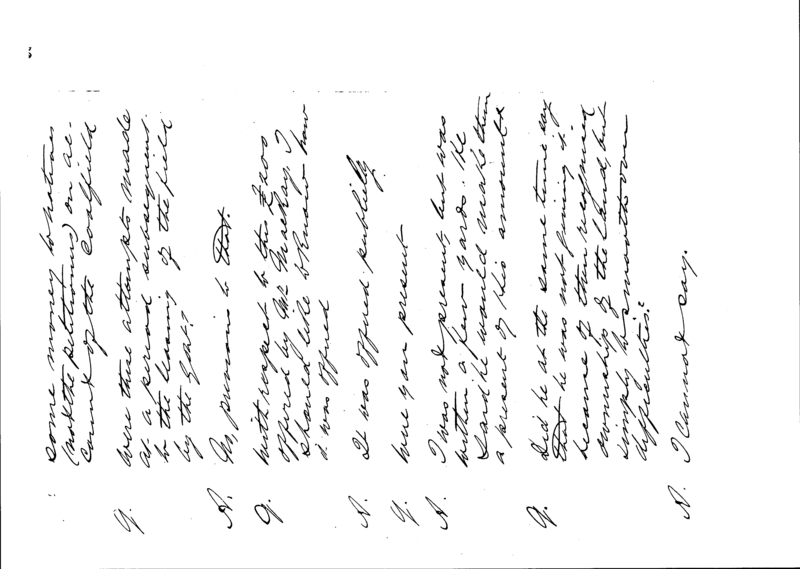 some money to natives
(not the petitioners) on ac-
count of the Coalfield
Q. Were these attempts made
at a period subsequent
to the leasing of the field
by the Govt?
A. No, previous to that.
Q. With respect to the
offered by Mr Mackay. I
should like to know how
it was offered
A. It was offered publicly.
Q. Were you present
A. I was not present, but was
within a few yards. He
said he would make them
a present of this amount
Q. Did he at the same time say
that he was not giving it
because of their
ownership of the land, but
simply to smooth over
difficulties?
A. I cannot say.